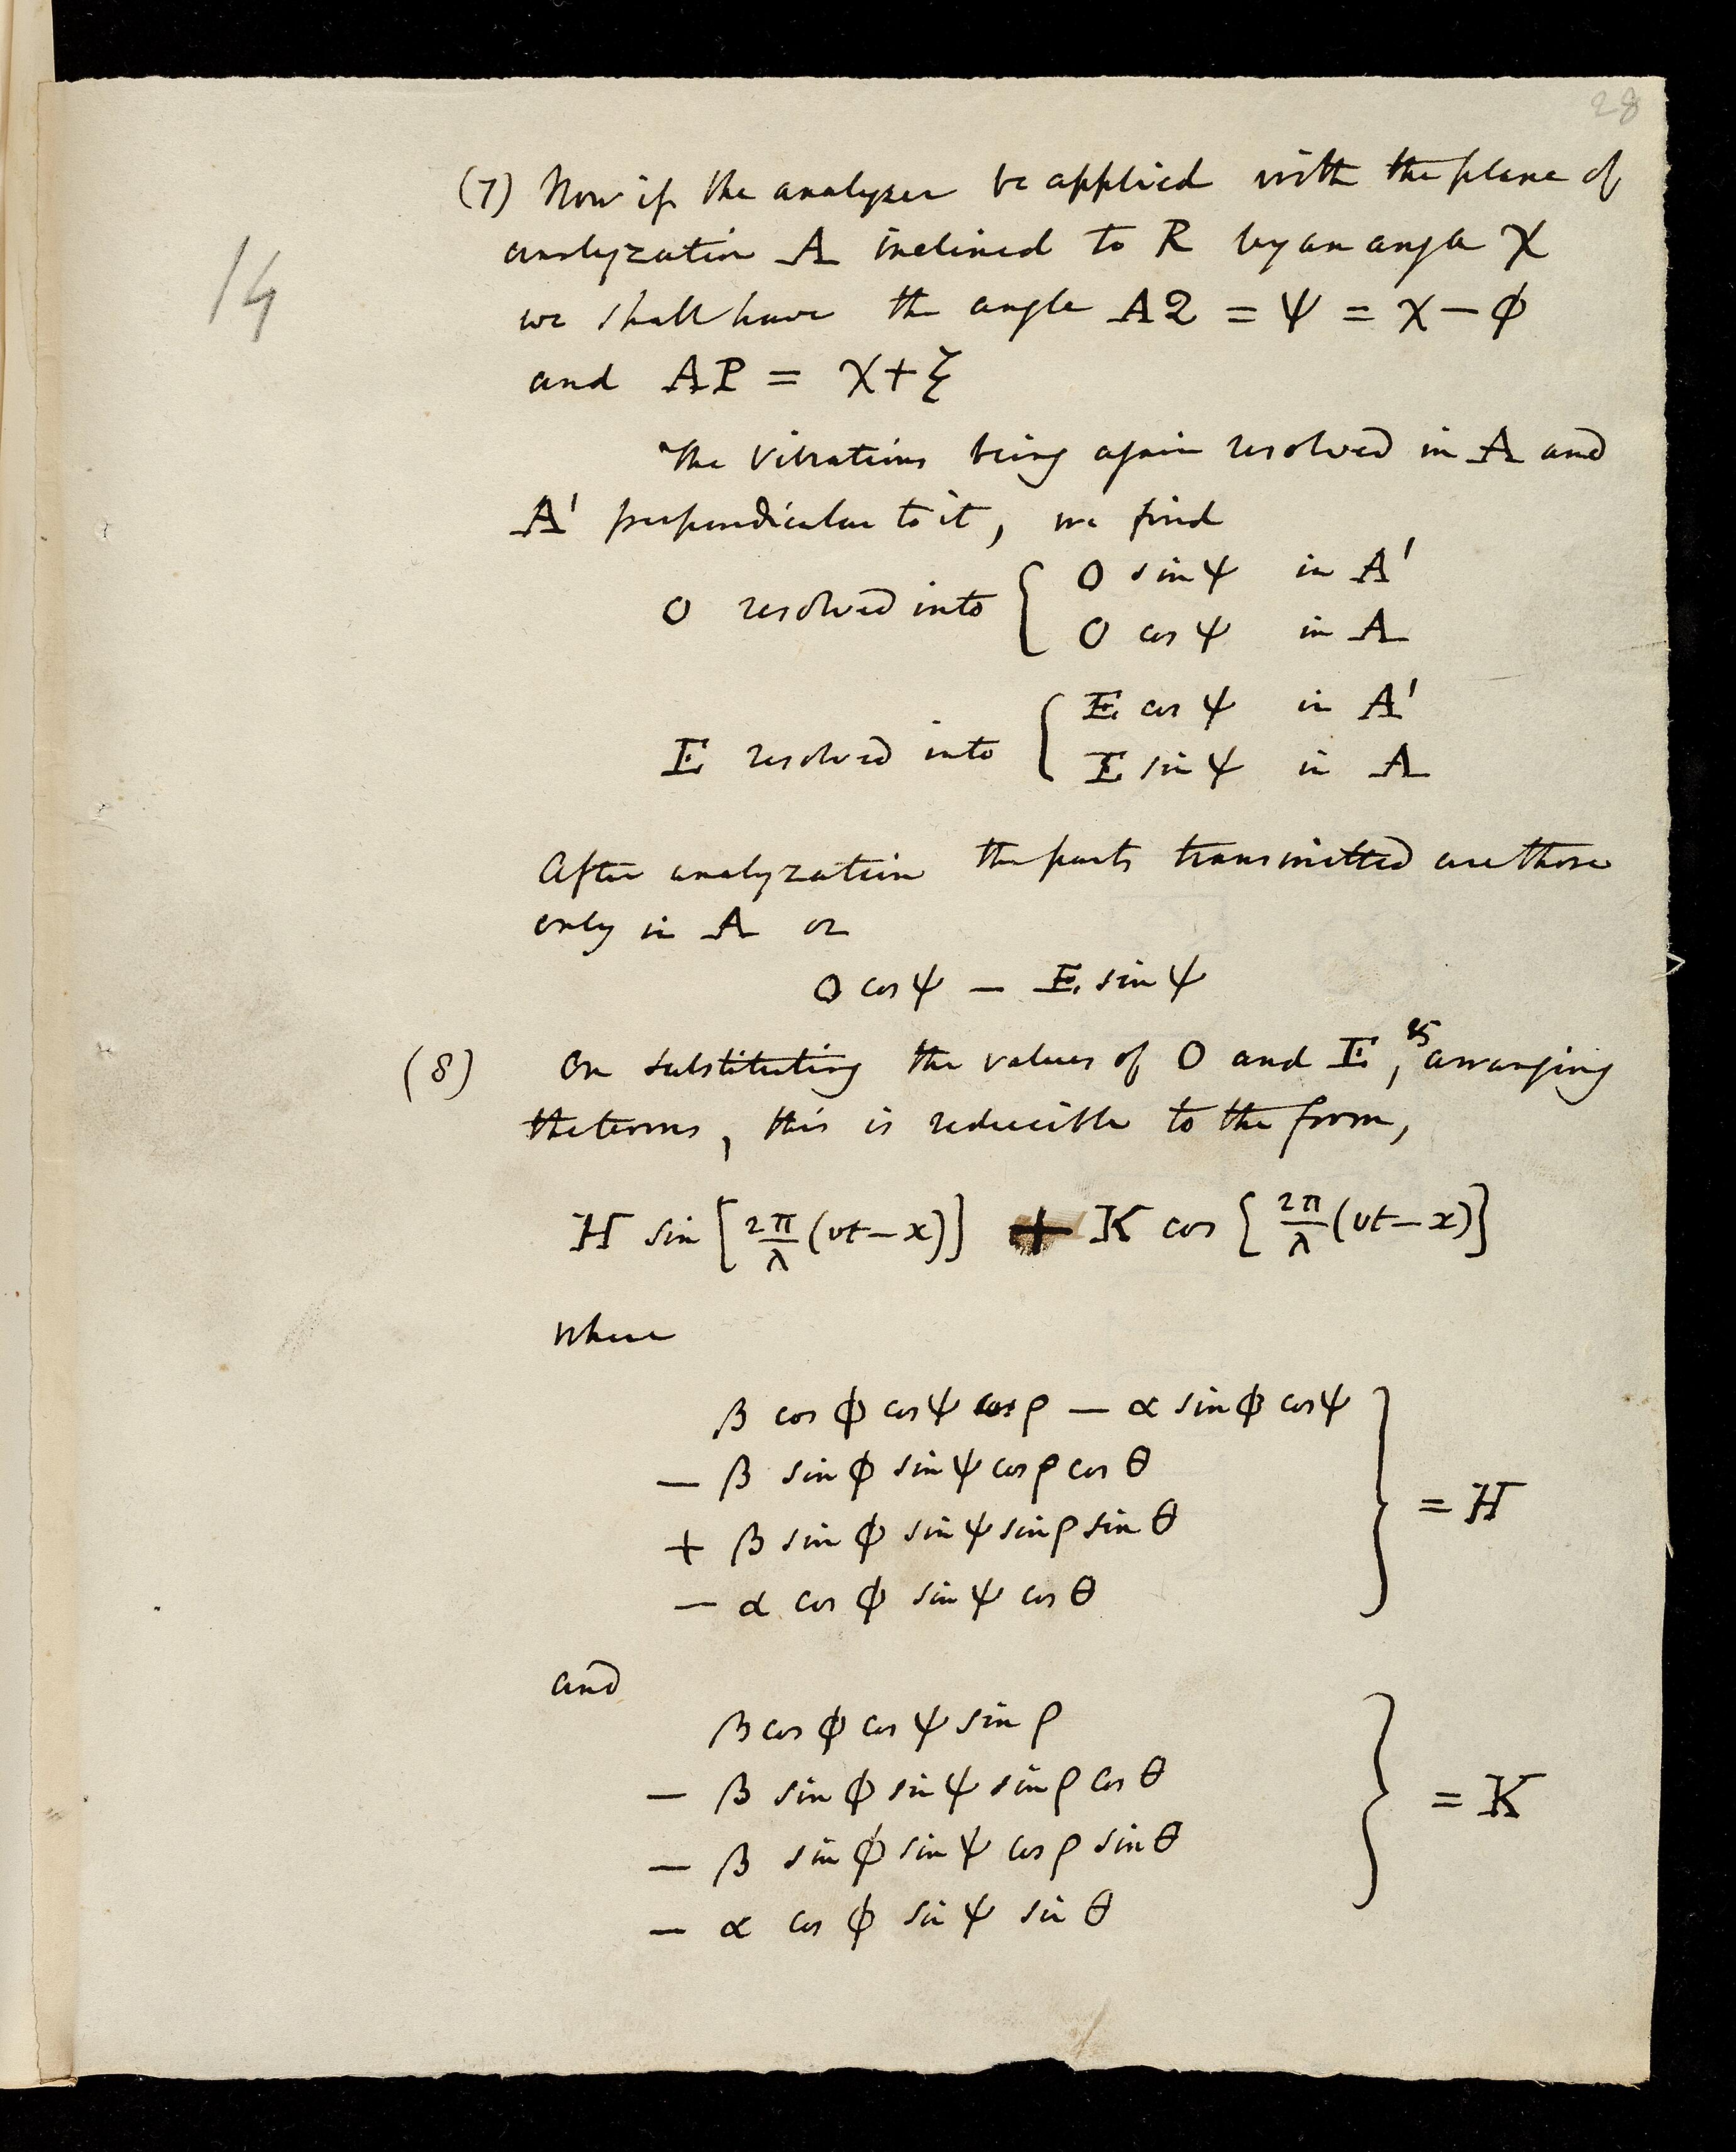 28
14
(7) Now if the analyzer be applied with the plane of
analyzation A inclined to R by an angle χ
we shall have the angle AQ = ψ = χ − ϕ
and AP = χ + ξ
The vibrations being again resolved in A and
A' perpendicular to it, we find
O resolved into { O sin ψ in A'
O cos ψ in A
E resolved into { E cos ψ in A'
E sin ψ in A
After analyzation the parts transmitted are those
only in A or
O cos ψ − E sin ψ
(8) On substituting the values of O and E, & arranging
the terms, this is reducible to the form,
H sin [2π/λ (vt − x)] + K cos {2π/λ (vt − x)}
where
β cos ϕ cos ψ cos ρ − α sin ϕ cos ψ
− β sin ϕ sin ψ cos ρ cos θ
+ β sin ϕ sin ψ sin ρ sin θ } = H
− α cos ϕ sin ψ cos θ
and
β cos ϕ cos ψ sin ρ
− β sin ϕ sin ψ sin ρ cos θ } = K
− β sin ϕ sin ψ cos ρ sin θ
− α cos ϕ sin ψ sin θ